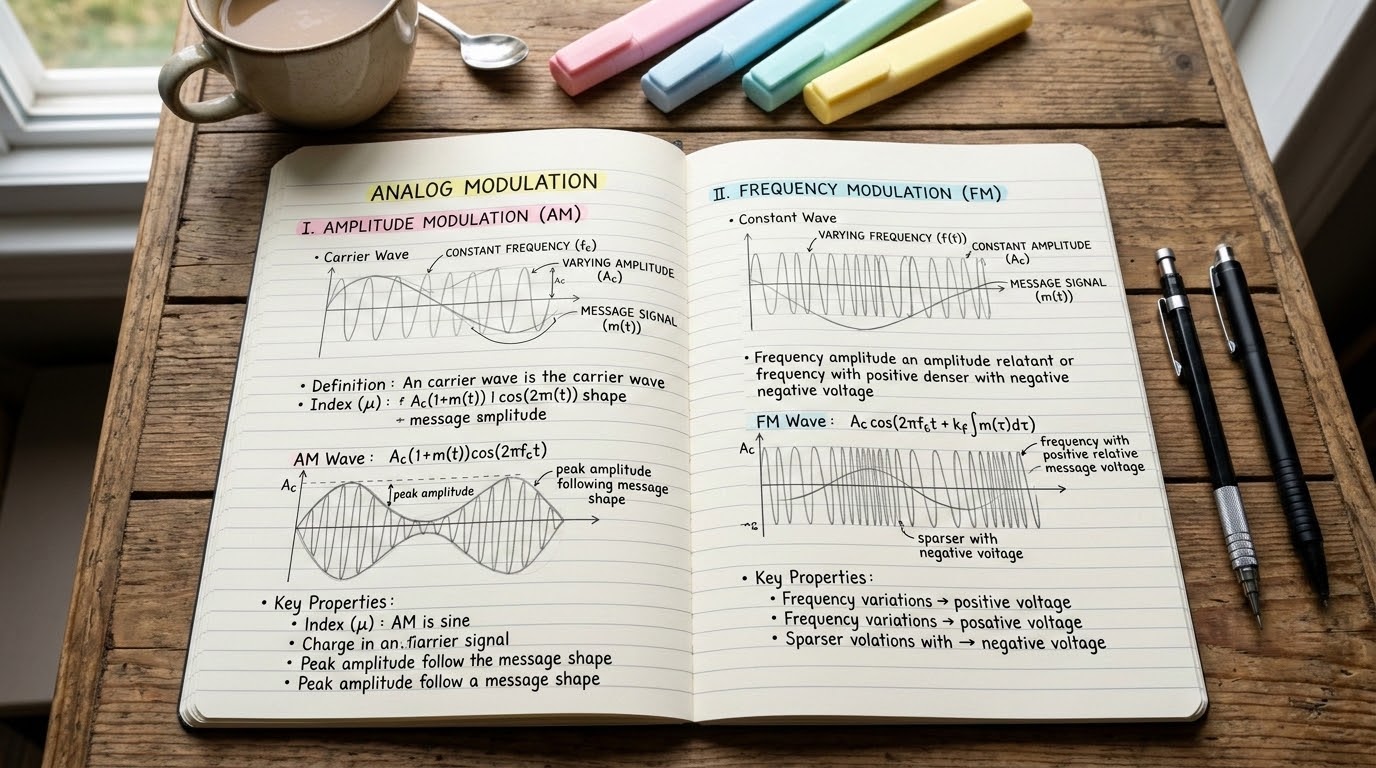 ANALOG MODULATION
I. AMPLITUDE MODULATION (AM)
• Carrier Wave
CONSTANT FREQUENCY (fc)
VARYING AMPLITUDE
(Ac)
Ac
MESSAGE SIGNAL
(m(t))
• Definition : An carrier wave is the carrier wave
• Index (μ) : Ac(1+m(t)) | cos(2m(t)) shape
÷ message smplitude
AM Wave : Ac(1+m(t))cos(2πfct)
Ac
peak amplitude
peak amplitude
following message
shape
• Key Properties:
• Index (μ) : AM is sine
• Charge in an signal
• Peak amplitude follow the message shape
• Peak amplitude follow a message shape
II. FREQUENCY MODULATION (FM)
• Constant Wave
VARYING FREQUENCY (f(t))
CONSTANT AMPLITUDE
(Ac)
MESSAGE SIGNAL
(m(t))
• Frequency amplitude an amplitude relatant or
frequency with positive denser with negative
negative voltage
FM Wave: Ac cos(2πfct + kf∫m(τ)dτ)
Ac
frequency with
positive relative
message voltage
sparser with
negative voitage
• Key Properties:
• Frequency variations → positive voltage
• Frequency variations → posative voltage
• Sparser volations with → negative voltage